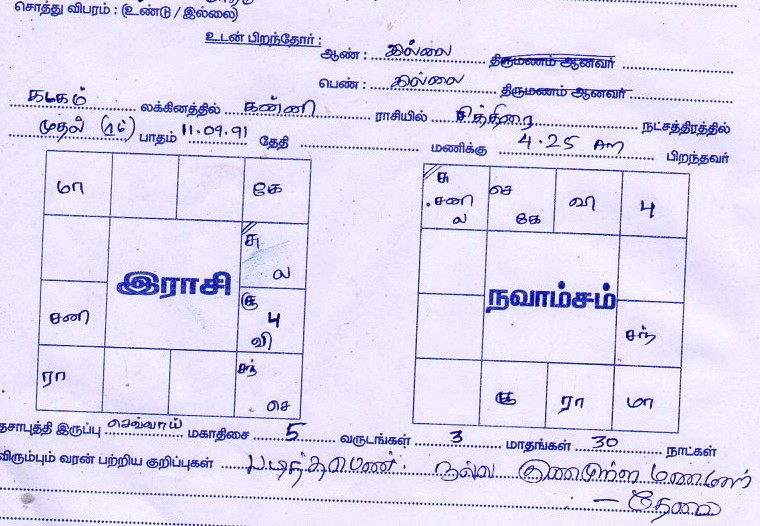 சொத்து விபரம் : (உண்டு / இல்லை)
உடன் பிறந்தோர் :
ஆண் : இல்லை திருமணம் ஆனவர்
பெண் : இல்லை திருமணம் ஆனவர்
கடகம் லக்கினத்தில் கன்னி ராசியில் சித்திரை நட்சத்திரத்தில்
முதல் (1ம்) பாதம் 11.09.91 தேதி மணிக்கு 4.25 Am பிறந்தவர்
மா கே
சு
ல
இராசி
சனி கு பு வி
ரா சந் செ
சு சனி ல செ கே வி பு
நவாம்சம்
சந்
கு ரா மா
தசாபுத்தி இருப்பு செவ்வாய் மகாதிசை 5 வருடங்கள் 3 மாதங்கள் 30 நாட்கள்
விரும்பும் வரன் பற்றிய குறிப்புகள் நல்ல குணமுள்ள மணமகன்
– தேவை